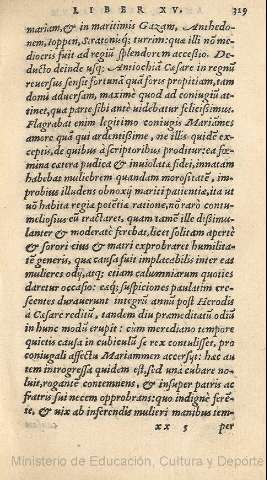 LIBER XV. 319
mariam, & in maritimis Gazam, Anthedo-
nem, Ioppen, Stratonisq; turrim: qua illi nō me-
diocris fuit ad regiū splendorem accessio. De-
ducto deinde usq; Antiochiā Cæsare in regnū
reuersus sensit fortunā quā foris propitiam, tam
domi aduersam, maximè quod ad coniugiū at-
tinet, qua parte sibi antè uidebatur felicissimus.
Flagrabat enim legitimo coniugis Mariāmes
amore quā qui ardentissimè, ne illis quidē ex-
ceptis, de quibus à scriptoribus proditur: ea fœ-
mina cætera pudica & inuiolatæ fidei, innatam
habebat muliebrem quandam morositatē, im-
probius illudens obnoxij mariti patientiæ, ita ut
nō habita regiæ potētiæ ratione, nō rarò contu-
meliosius eū tractaret, quam tamē ille dissimu-
lanter & moderatè ferebat, licet solitam apertè
& sorori eius & matri exprobraret humilita-
tē generis, qua causa fuit implacabilis inter eas
mulieres odij, atq; etiam calumniarum quoties
daretur occasio: eæq; suspiciones paulatim cre-
scentes durauerunt integrū annū post Herodis
à Cæsare reditū, tandem diu præmeditatū odiū
in hunc modū erupit: cùm meridiano tempore
quietis causa in cubiculū se rex contulisset, pro
coniugali affectu Mariammen accersyt: hæc au
tem introgressa quidem est, sed unà cubare no-
luit, rogantē contemnens, & insuper patris ac
fratris sui necem opprobrans: quo indignè ferē-
te, & uix ab inferendis mulieri manibus tem-
xx 5 per
Ministerio de Educación, Cultura y Deporte